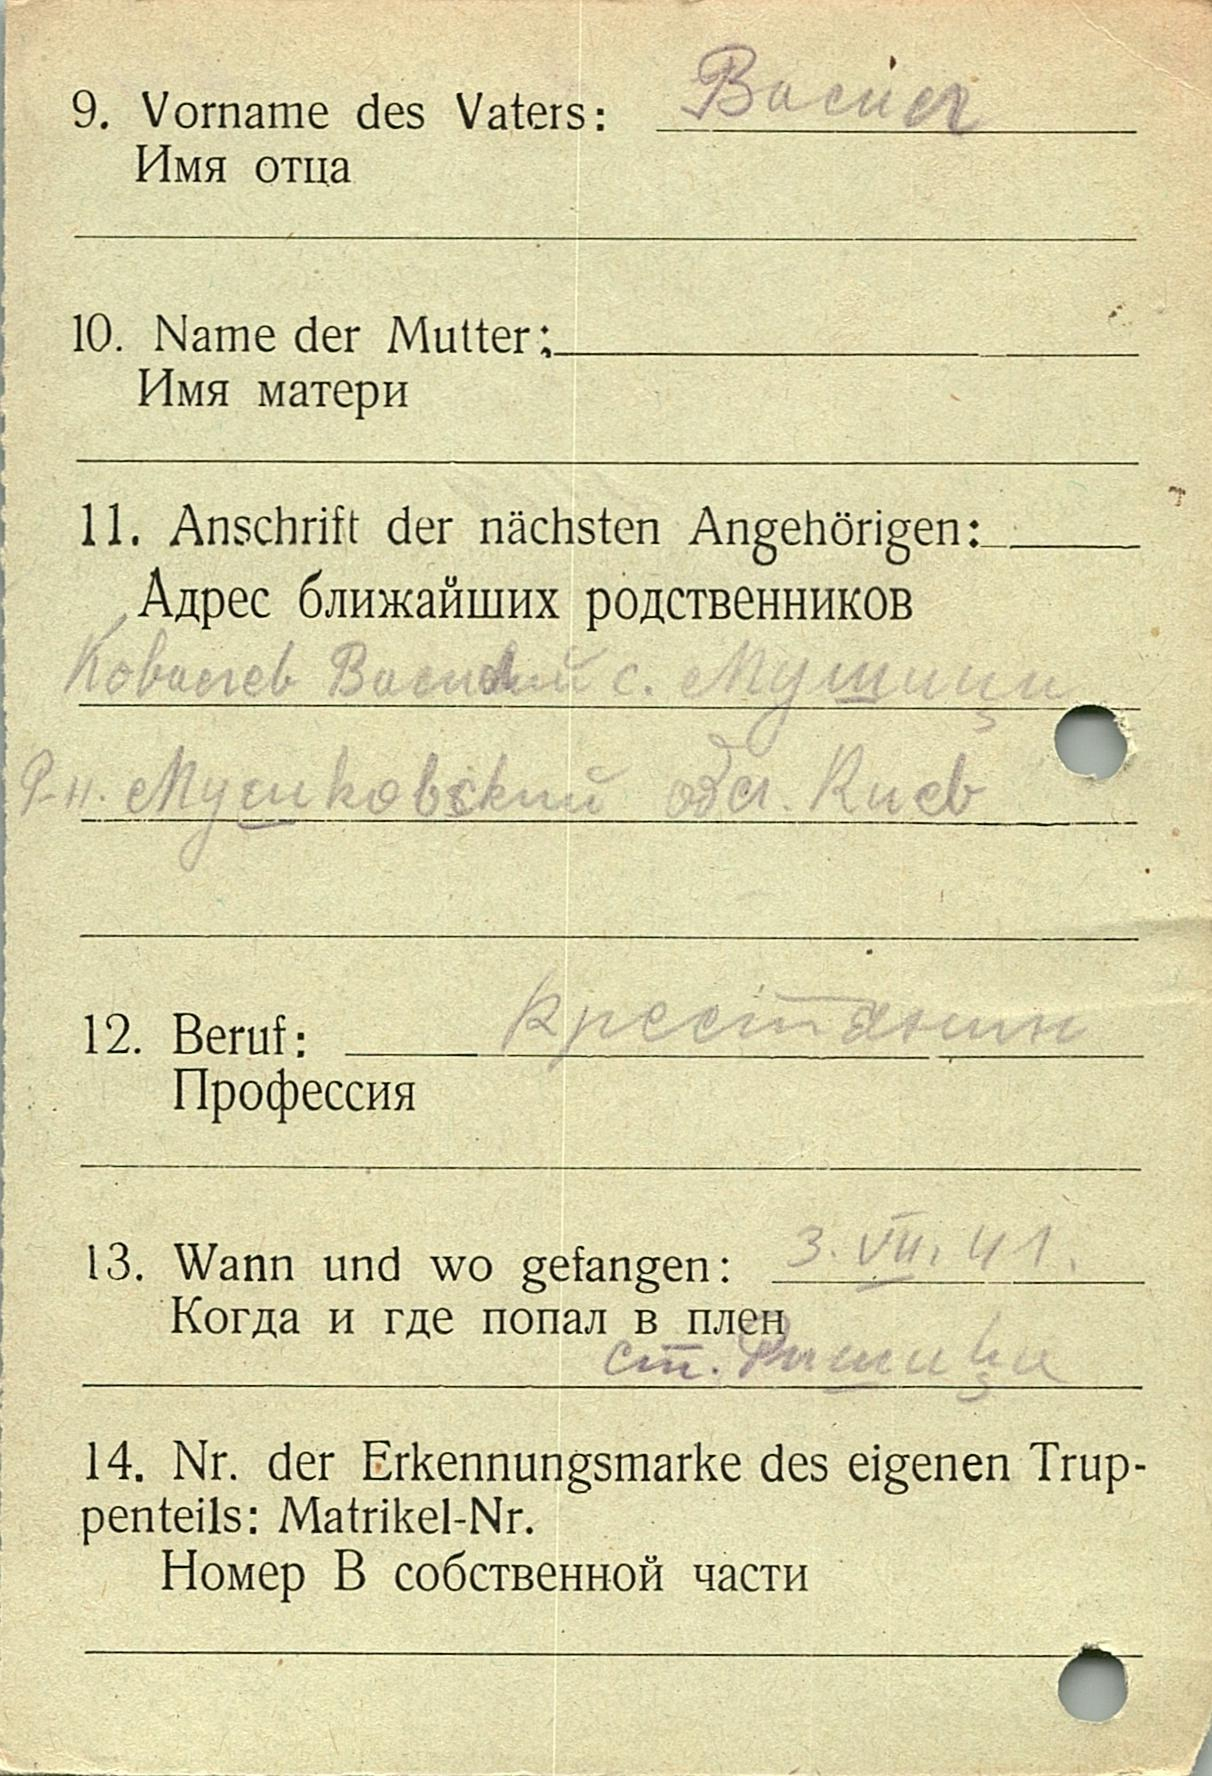 9. Vorname des Vaters: Васил
Имя отца
10. Name der Mutter:
Имя матери
11. Anschrift der nächsten Angehörigen:
Адрес ближайших родственников
Ковалев Василий с.
Р-н. обл. Киев
12. Beruf: крестянин
Профессия
13. Wann und wo gefangen: 3. VII. 41.
Когда и где попал в плен
ст.
14. Nr. der Erkennungsmarke des eigenen Trup-
penteils: Matrikel-Nr.
Номер В собственной части